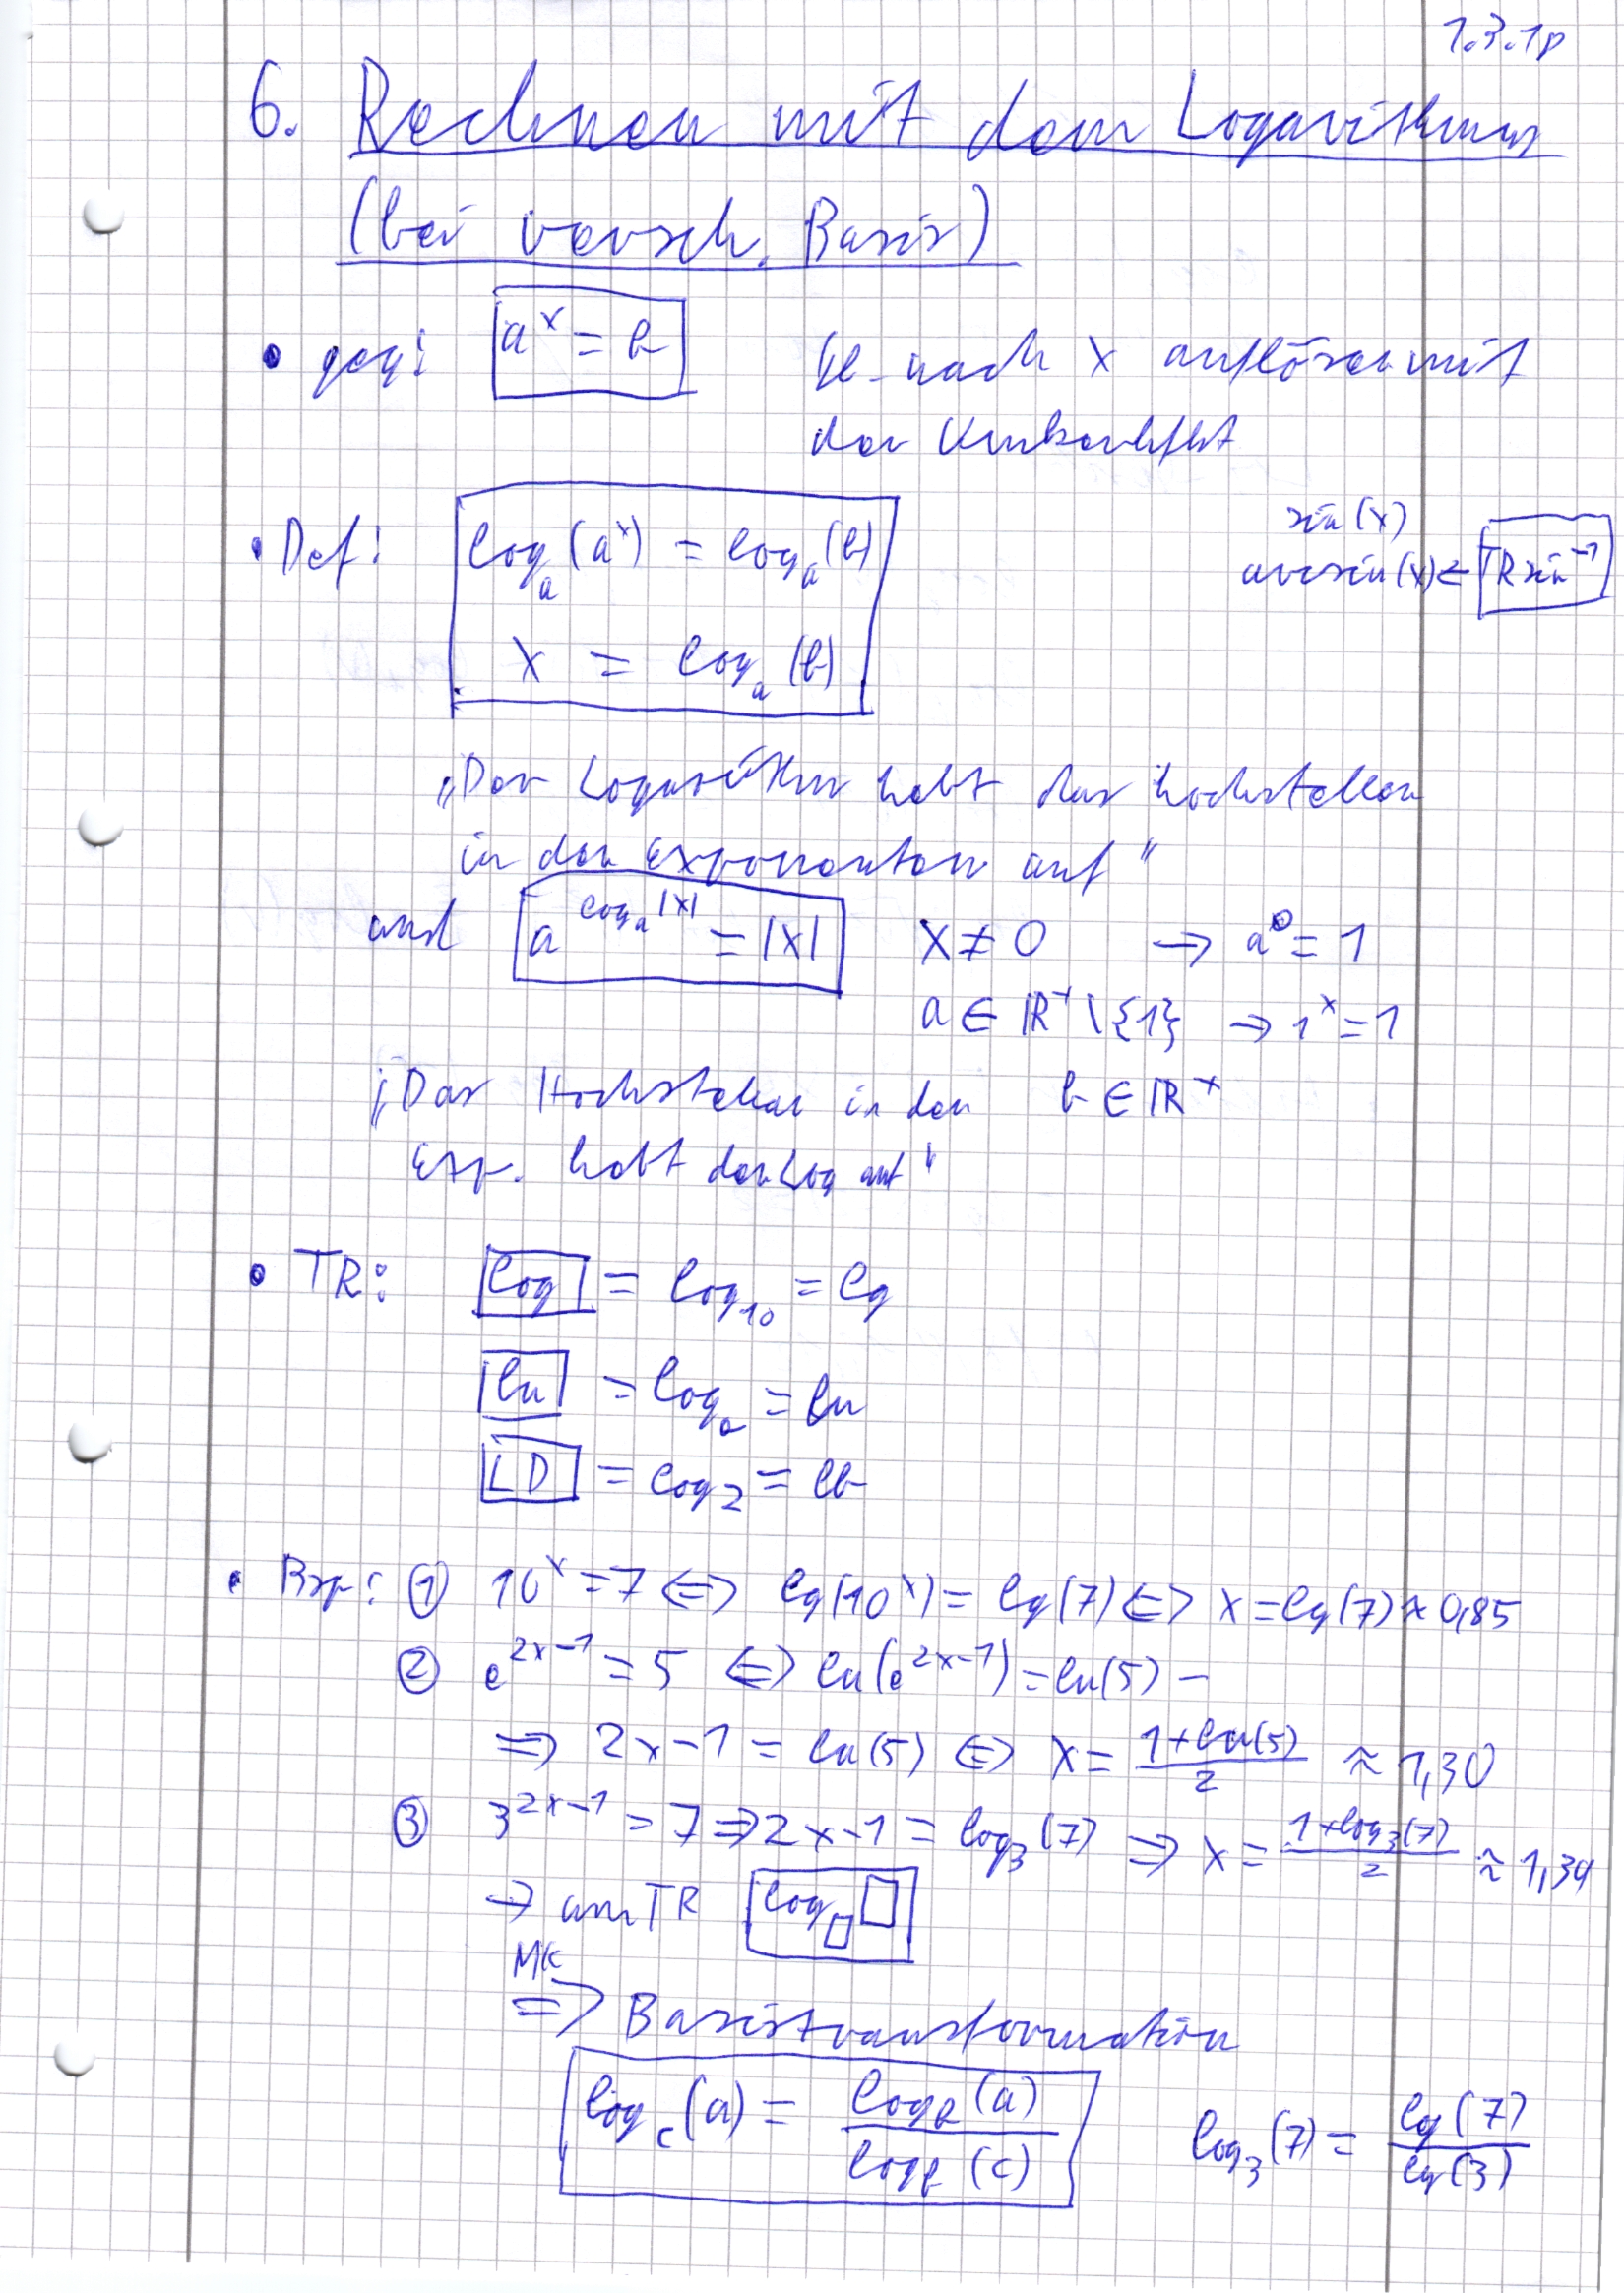 1.3.18
6. Rechnen mit dem Logarithmus
(bei versch. Basis)
• geg: a^x = b    Gl. nach x auflösen mit
der Umkehrfkt
• Def: log_a(a^x) = log_a(b)
x = log_a(b)
sin(x)
arcsin(x) ← TR sin^-1
„Der Logarithm hebt das hochstellen
in den Exponenten auf"
und a^(log_a|x|) = |x|    x ≠ 0 → a^0 = 1
a ∈ ℝ^+ \ {1} → 1^x = 1
„Das Hochstellen in den    b ∈ ℝ^+
Exp. hebt den Log auf"
• TR: log = log_10 = lg
ln = log_e = ln
LD = log_2 = lb
• Bsp: ① 10^x = 7 ⇔ lg(10^x) = lg(7) ⇔ x = lg(7) ≈ 0,85
② e^(2x-1) = 5 ⇔ ln(e^(2x-1)) = ln(5) –
⇒ 2x-1 = ln(5) ⇔ x = (1+ln(5))/2 ≈ 1,30
③ 3^(2x-1) = 7 ⇒ 2x-1 = log_3(7) ⇒ x = (1+log_3(7))/2 ≈ 1,39
→ am TR log_□ □
MK
⇒ Basistransformation
log_c(a) = log_b(a) / log_b(c)    log_3(7) = lg(7) / lg(3)